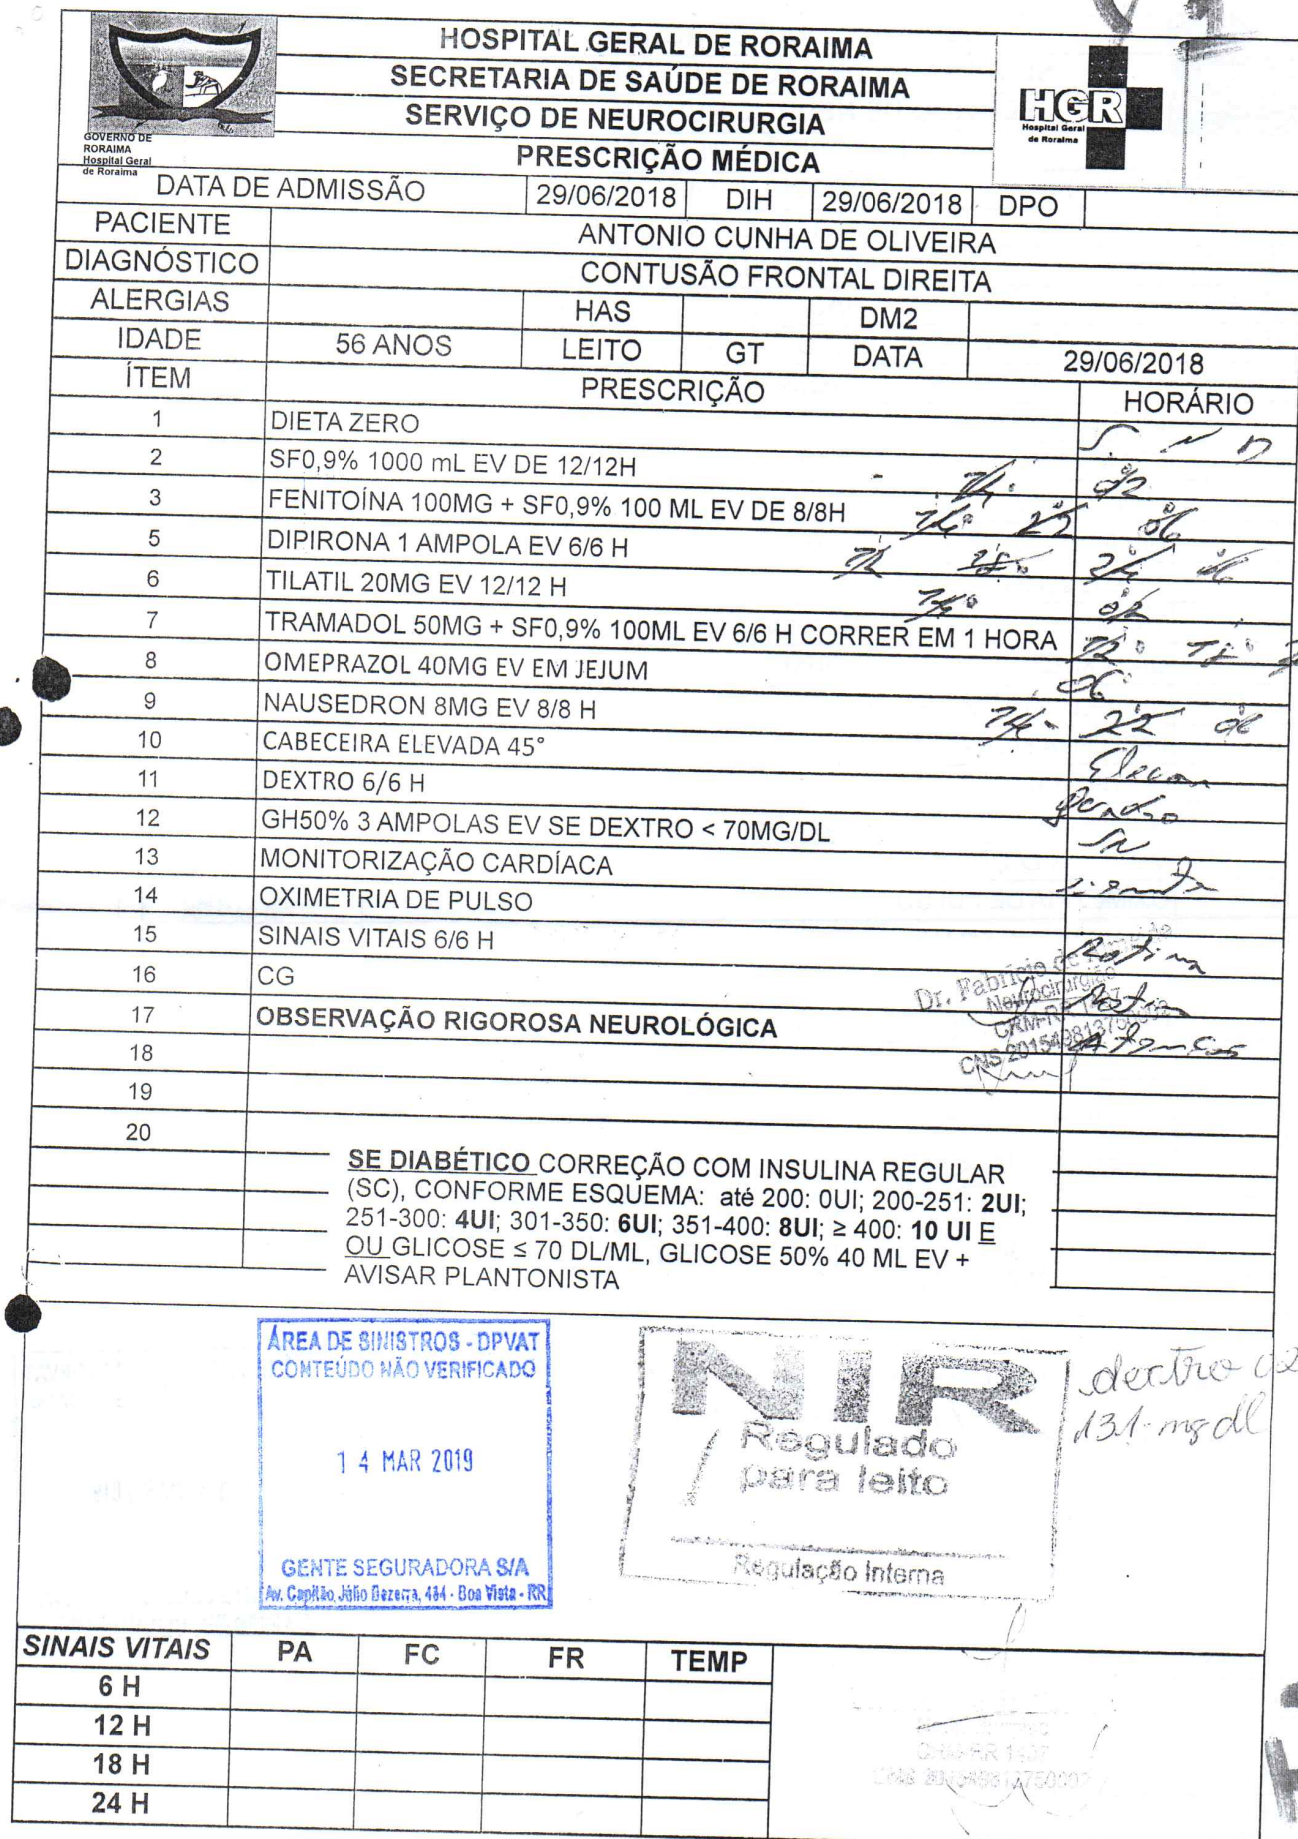 HOSPITAL GERAL DE RORAIMA
SECRETARIA DE SAÚDE DE RORAIMA
SERVIÇO DE NEUROCIRURGIA
PRESCRIÇÃO MÉDICA
GOVERNO DE
RORAIMA
Hospital Geral
de Roraima
HGR
Hospital Geral
de Roraima
DATA DE ADMISSÃO 29/06/2018 DIH 29/06/2018 DPO
PACIENTE ANTONIO CUNHA DE OLIVEIRA
DIAGNÓSTICO CONTUSÃO FRONTAL DIREITA
ALERGIAS HAS DM2
IDADE 56 ANOS LEITO GT DATA 29/06/2018
ÍTEM PRESCRIÇÃO HORÁRIO
1 DIETA ZERO
2 SF0,9% 1000 mL EV DE 12/12H
3 FENITOÍNA 100MG + SF0,9% 100 ML EV DE 8/8H
5 DIPIRONA 1 AMPOLA EV 6/6 H
6 TILATIL 20MG EV 12/12 H
7 TRAMADOL 50MG + SF0,9% 100ML EV 6/6 H CORRER EM 1 HORA
8 OMEPRAZOL 40MG EV EM JEJUM 06
9 NAUSEDRON 8MG EV 8/8 H
10 CABECEIRA ELEVADA 45°
11 DEXTRO 6/6 H
12 GH50% 3 AMPOLAS EV SE DEXTRO < 70MG/DL SN
13 MONITORIZAÇÃO CARDÍACA
14 OXIMETRIA DE PULSO
15 SINAIS VITAIS 6/6 H Rotina
16 CG Rotina
17 OBSERVAÇÃO RIGOROSA NEUROLÓGICA
Dr. Fabrício de
Neurocirurgião
18
19
20
SE DIABÉTICO CORREÇÃO COM INSULINA REGULAR
(SC), CONFORME ESQUEMA: até 200: 0UI; 200-251: 2UI;
251-300: 4UI; 301-350: 6UI; 351-400: 8UI; ≥ 400: 10 UI E
OU GLICOSE ≤ 70 DL/ML, GLICOSE 50% 40 ML EV +
AVISAR PLANTONISTA
ÁREA DE SINISTROS - DPVAT
CONTEÚDO NÃO VERIFICADO
14 MAR 2019
GENTE SEGURADORA S/A
Av. Capitão Júlio Bezerra, 484 - Boa Vista - RR
NIR
Regulado
para leito
Regulação Interna
dextro
131 mg dl
SINAIS VITAIS PA FC FR TEMP
6 H
12 H
18 H
24 H